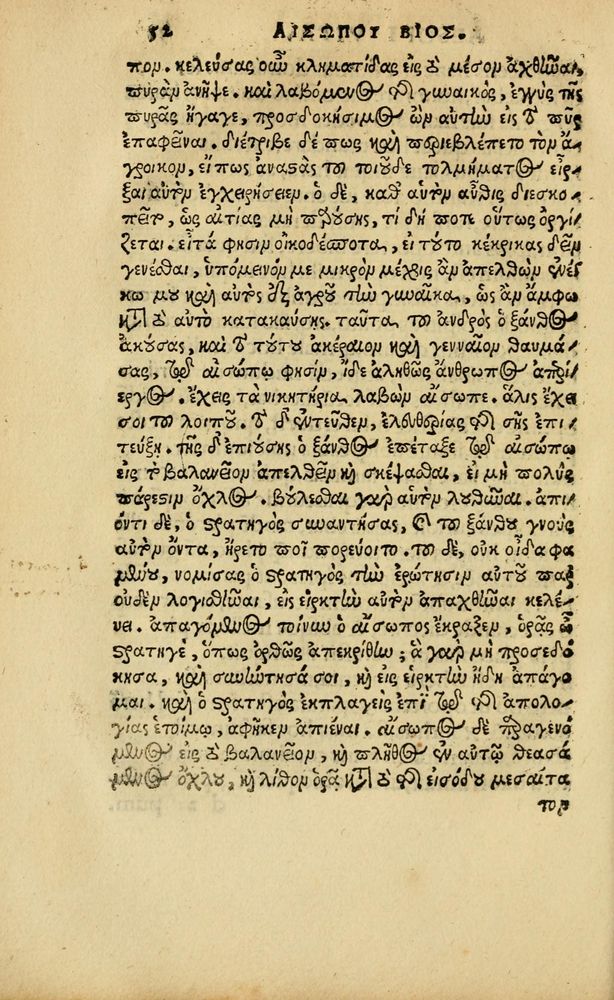 52 ΑΙΣΩΠΟΥ ΒΙΟΣ.
πον. κελεύσας οὖν κληματίδας εἰς τὸ μέσον ἀχθῆναι,
πυρὰν ἀνῆψε. καὶ λαβόμενος τῆς γυναικὸς, ἐγγὺς τῆς
πυρᾶς ἤγαγε, προσδοκήσιμος ὢν αὐτὴν εἰς τὸ πῦρ
ἐπαφεῖναι. διέτριβε δέ πως καὶ περιεβλέπετο τὸν ἄ-
γροικον, εἴ πως ἀναστὰς τοῦ τοιοῦδε τολμήματος εἶρ-
ξαι αὐτὸν ἐγχειρήσειεν. ὁ δὲ, καθ' αὑτὸν αὖθις διεσκό
πει, ὡς αἰτίας μὴ παρούσης, τί δή ποτε οὕτως ὀργί-
ζεται. εἶτά φησιν οἰκοδέσποτα, εἰ τοῦτο κέκρικας δεῖν
γενέσθαι, ὑπόμεινόν με μικρὸν μέχρις ἂν ἀπελθὼν ἐνέγ
κω μου καὶ αὐτὸς ἐξ ἀγροῦ τὴν γυναῖκα, ὡς ἂν ἄμφω
κατὰ τὸ αὐτὸ κατακαύσῃς. ταῦτα τοῦ ἀνδρὸς ὁ ξάνθος
ἀκούσας, καὶ τὸ τούτου ἀκέραιον καὶ γενναῖον θαυμά-
σας, τῷ αἰσώπῳ φησίν, ἴδε ἀληθῶς ἄνθρωπος ἀπερί-
εργος. ἔχεις τὰ νικητήρια λαβὼν αἴσωπε. ἅλις ἔχει
σοι τοῦ λοιποῦ. τὸ δ' ἐντεῦθεν, ἐλευθερίας τῆς σῆς ἐπι
τεύξῃ. τῆς δ' ἐπιούσης ὁ ξάνθος ἐπέταξε τῷ αἰσώπῳ
εἰς τὸ βαλανεῖον ἀπελθεῖν καὶ σκέψασθαι, εἰ μὴ πολὺς
πάρεστιν ὄχλος. βούλεσθαι γὰρ αὐτὸν λυθῆναι. ἀπι-
όντι δὲ, ὁ στρατηγὸς συναντήσας, καὶ τοῦ ξάνθου γνοὺς
αὐτὸν ὄντα, ἤρετο ποῖ πορεύοιτο. τοῦ δὲ, οὐκ οἶδα φα
μένου, νομίσας ὁ στρατηγὸς τὴν ἐρώτησιν αὐτοῦ παρ'
οὐδὲν λογισθῆναι, εἰς εἱρκτὴν αὐτὸν ἀπαχθῆναι κελέ-
υει. ἀπαγόμενος τοίνυν ὁ αἴσωπος ἔκραξεν, ὁρᾷς ὦ
στρατηγὲ, ὅπως ὀρθῶς ἀπεκρίθην; ἃ γὰρ μὴ προσεδό
κησα, καὶ συνήντησά σοι, καὶ εἰς εἱρκτὴν ἤδη ἀπάγο
μαι. καὶ ὁ στρατηγὸς ἐκπλαγεὶς ἐπὶ τῷ τῆς ἀπολο-
γίας ἑτοίμῳ, ἀφῆκεν ἀπιέναι. αἴσωπος δὲ παραγενό
μενος εἰς τὸ βαλανεῖον, καὶ πλῆθος ἐν αὐτῷ θεασά
μενος ὄχλου, καὶ λίθον ὁρᾷ κατὰ τὸ τῆς εἰσόδου μεσαίτα
τον